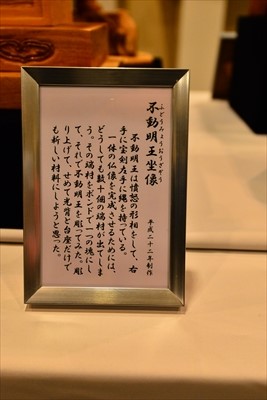 ふどうみょうおうざぞう
不動明王坐像
平成二十二年制作
不動明王は憤怒の形相をして、右
手に宝剣左手に縄を持っている。
一体の仏像を完成させるためには、
どうしても数十個の端材が出てしま
う。その端材をボンドで一つの塊にし
て、それで不動明王を彫ってみた。彫
り上げて、せめて光背と台座だけで
も新しい材料にしようと思った。